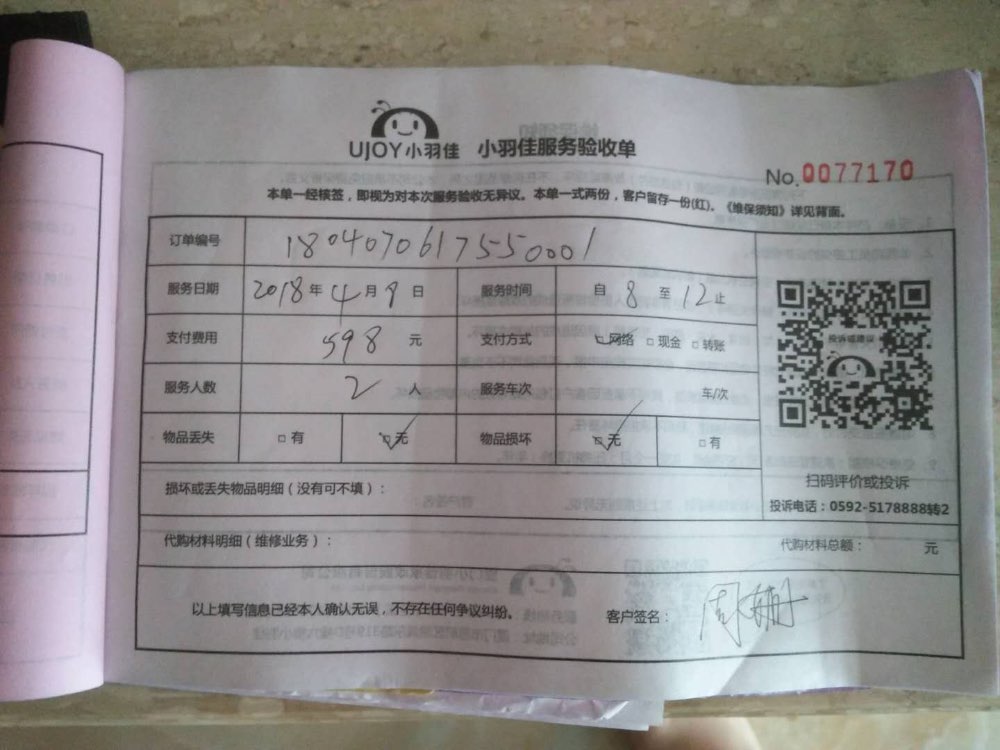 UJOY小羽佳 小羽佳服务验收单
No.0077170
本单一经核签，即视为对本次服务验收无异议。本单一式两份，客户留存一份(红)。《维保须知》详见背面。
订单编号 1804070617550001
服务日期 2018年4月9日 服务时间 自8至12止
支付费用 598元 支付方式 □网络 □现金 □转账
服务人数 2人 服务车次 车/次
物品丢失 □有 ☑无 物品损坏 ☑无 □有
投诉或建议
扫码评价或投诉
投诉电话：0592-5178888转2
损坏或丢失物品明细（没有可不填）：
代购材料明细（维修业务）： 代购材料总额： 元
以上填写信息已经本人确认无误，不存在任何争议纠纷。 客户签名：